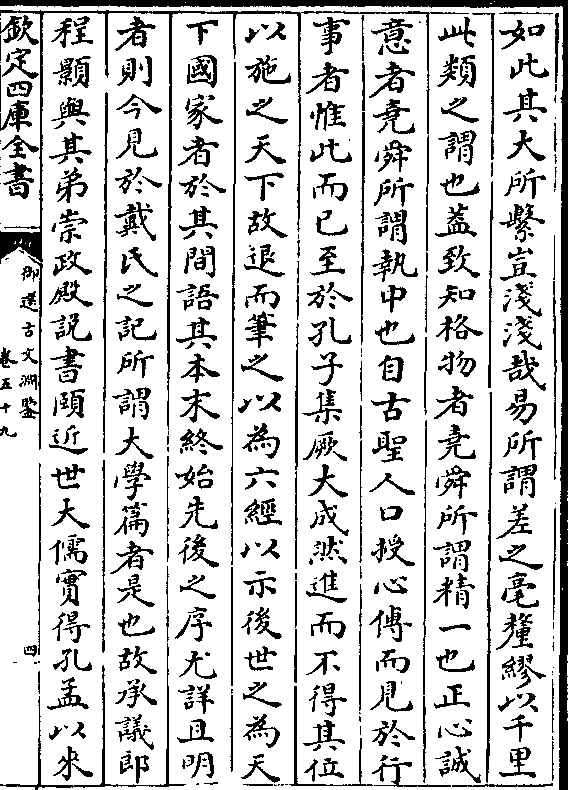 如此其大所繫豈淺淺哉易所謂差之毫釐繆以千里
此類之謂也蓋致知格物者堯舜所謂精一也正心誠
意者堯舜所謂執中也自古聖人口授心傳而見於行
事者惟此而已至於孔子集厥大成然進而不得其位
以施之天下故退而筆之以為六經以示後世之為天
下國家者於其間語其本末終始先後之序尤詳且明
者則今見於戴氏之記所謂大學篇者是也故承議郎
程顥與其弟崇政殿説書頤近世大儒實得孔孟以來
欽定四庫全書
御選古文淵鑒
卷五十九
四